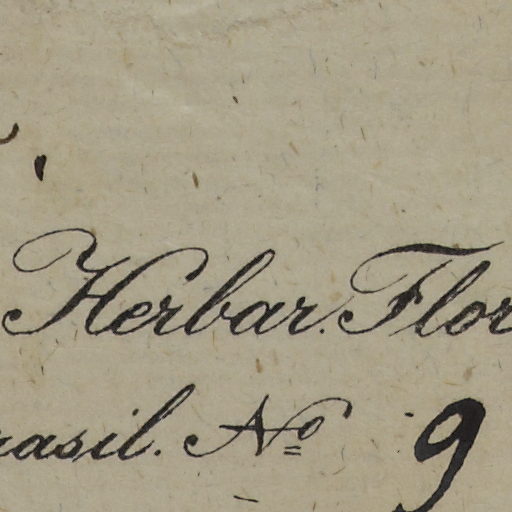 Herbar. Flor
rasil. Nº 9